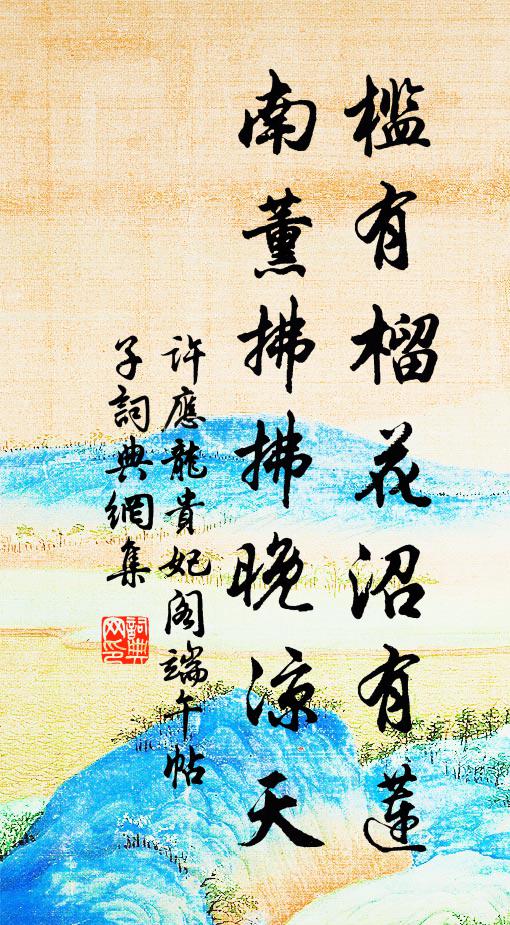 檻有榴花沼有蓮
南薰拂拂晚涼天
許應龍貴妃閣端午帖
子詞典網集